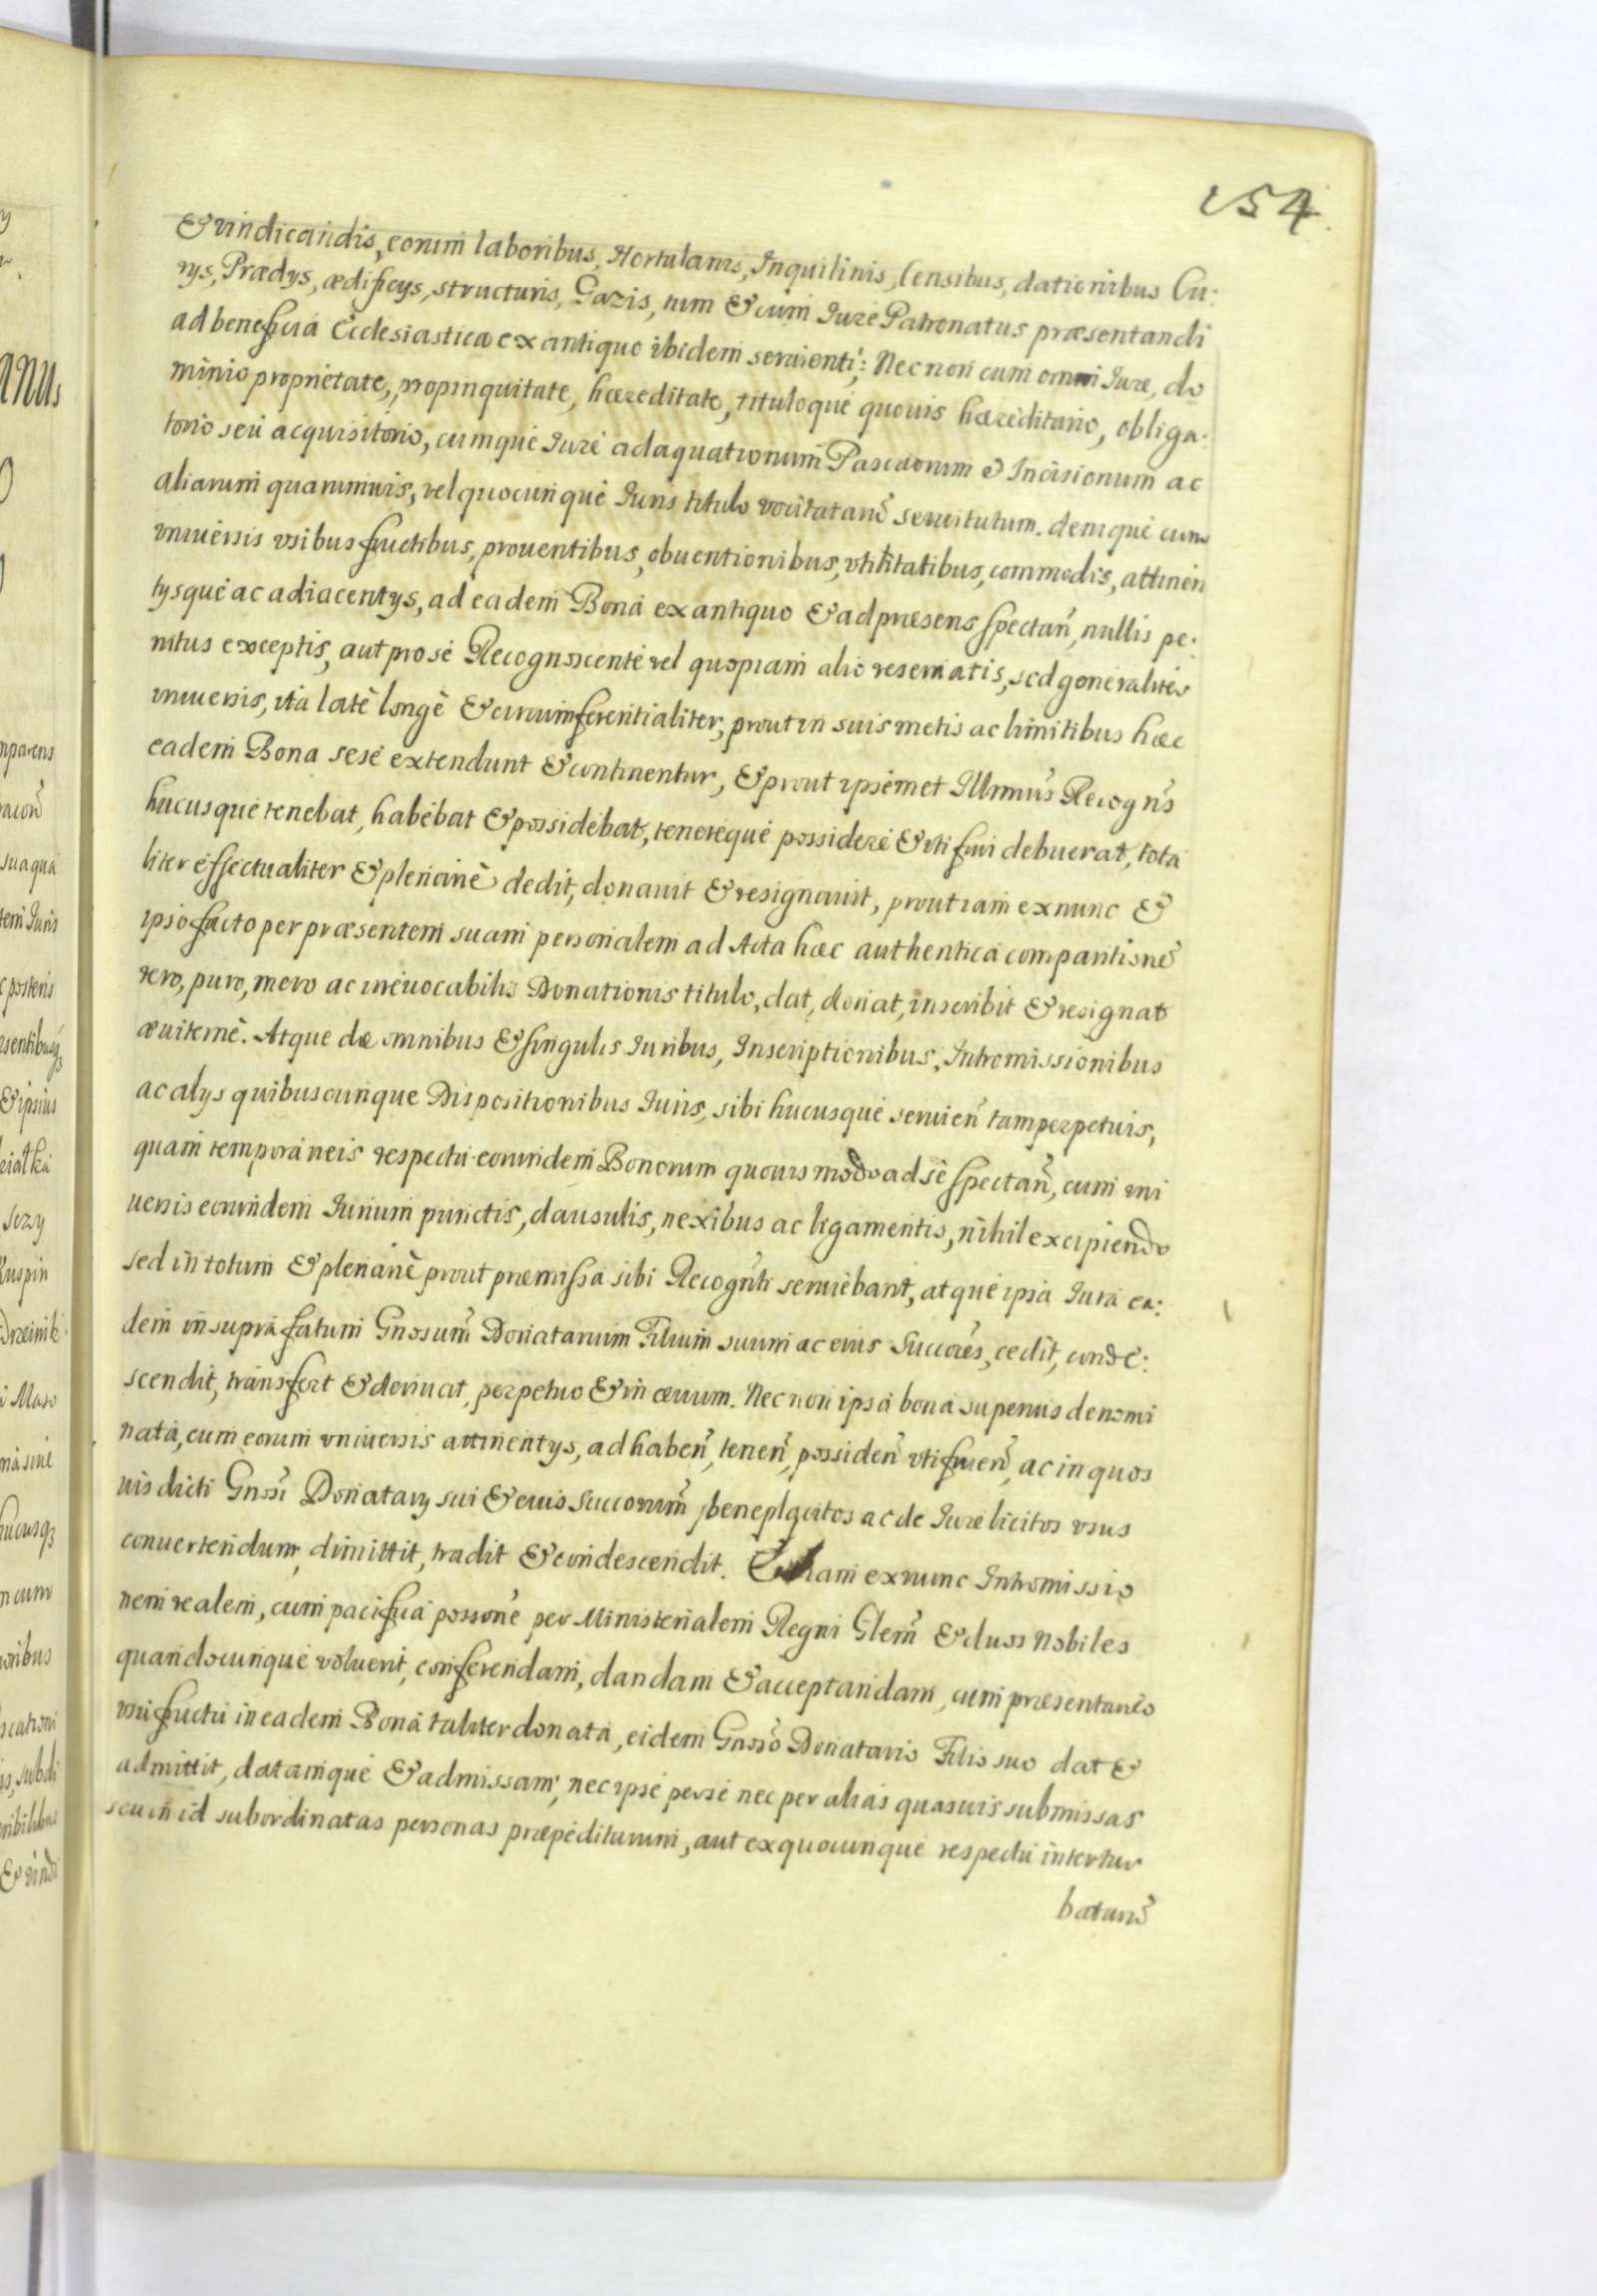 154
& vindicandis, eorum laboribus, Hortulanis, Inquilinis, Censibus, dationibus Cu:
rys, Prædys, ædificys, structuris, Gazis, tum & cum Iure Patronatus præsentandi
ad beneficia Ecclesiastica ex antiquo ibidem servienti: Nec non cum omni Iure, do
minio proprietate, propinquitate, hæreditate, tituloque quouis hæreditario, obliga:
torio seu acquisitorio, cumque Iure adaquationum Pascuorum & Incisionum ac
aliarum quarumuis, vel quocunque Iuris titulo vocitatarũ seruitutum. denique cum
vniuersis vsibus fructibus, prouentibus, obuentionibus, vtilitatibus, commodis, attinen
tysque ac adiacentys, ad eadem Bona ex antiquo & ad præsens spectañ, nullis pe:
nitus exceptis, aut pro se Recognoscente vel quopiam alio reseruatis, sed generaliter
vniuersis, ita latè longè & circumferentialiter, prout in suis metis ac limitibus hæc
eadem Bona sese extendunt & continentur, & prout ipsemet Illrmus Recogns
hucusque tenebat, habebat & possidebat, tenereque possidere & vti frui debuerat, tota
liter effectualiter & plenariè dedit, donauit & resignauit, prout iam ex nunc &
ipso facto per præsentem suam personalem ad Acta hæc authentica comparitionẽ
vero, puro, mero ac irreuocabilis Donationis titulo, dat, donat, inscribit & resignat
æuiternè. Atque de omnibus & singulis Iuribus, Inscriptionibus, Intromissionibus
ac alys quibuscunque Dispositionibus Iuris, sibi hucusque seruień tam perpetuis,
quam temporaneis respectu eorundem Bonorum quouis modo ad se spectañ, cum vni
uersis eorundem Iurium punctis, clausulis, nexibus ac ligamentis, nihil excipiendo
sed in totum & plenariè prout præmissa sibi Recognti seruiebant, atque ipsa Iura ea:
dem in supra fatum Gnosum Donatarium Filium suum ac eius Succres, cedit, conde:
scendit, transfert & deriuat, perpetuo & in æuum. Nec non ipsa bona superius denomi
nata, cum eorum vniuersis attinentys, ad habeñ, teneñ, possideñ vtifrueñ, ac in quos
uis dicti Gnosi Donatary sui & eius Succorum beneplacitos ac de Iure licitos vsus
conuertendum, dimittit, tradit & condescendit. iam ex nunc Intromissio
nem realem, cum pacifica possonẽ per Ministerialem Regni Glem & duos Nobiles
quandocunque voluerit, conferendam, dandam & acceptandam, cum præsentaneo
vsufructu in eadem Bona taliter donata, eidem Gnoso Donatario Filio suo dat &
admittit, datamque & admissam, nec ipse per se nec per alias quasuis submissas
seu in id subordinatas personas præpediturum, aut ex quocunque respectu intertur
baturũ